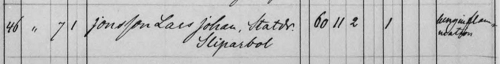 46 " 7 1 Jonsson Lars Johan, Statdr. 60 11 2 1
Sliparbol